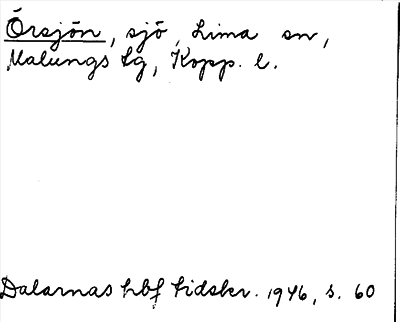 Örsjön, sjö, Lima sn,
Malungs tg, Kopp. l.
Dalarnas hbf tidskr. 1946, s. 60